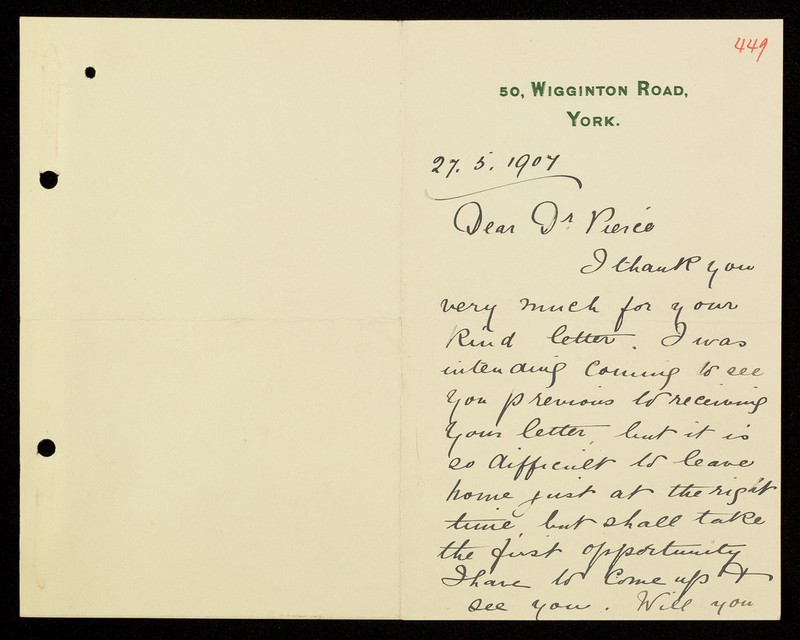 449
50, WIGGINTON ROAD,
YORK.
27. 5. 1907
Dear Dr Pierce
I thank you
very much for your
kind letter. I was
intending coming to see
you previous to receiving
your letter, but it is
so difficult to leave
home just at the right
time, but shall take
the first opportunity
I have to come up &
see you. Will you